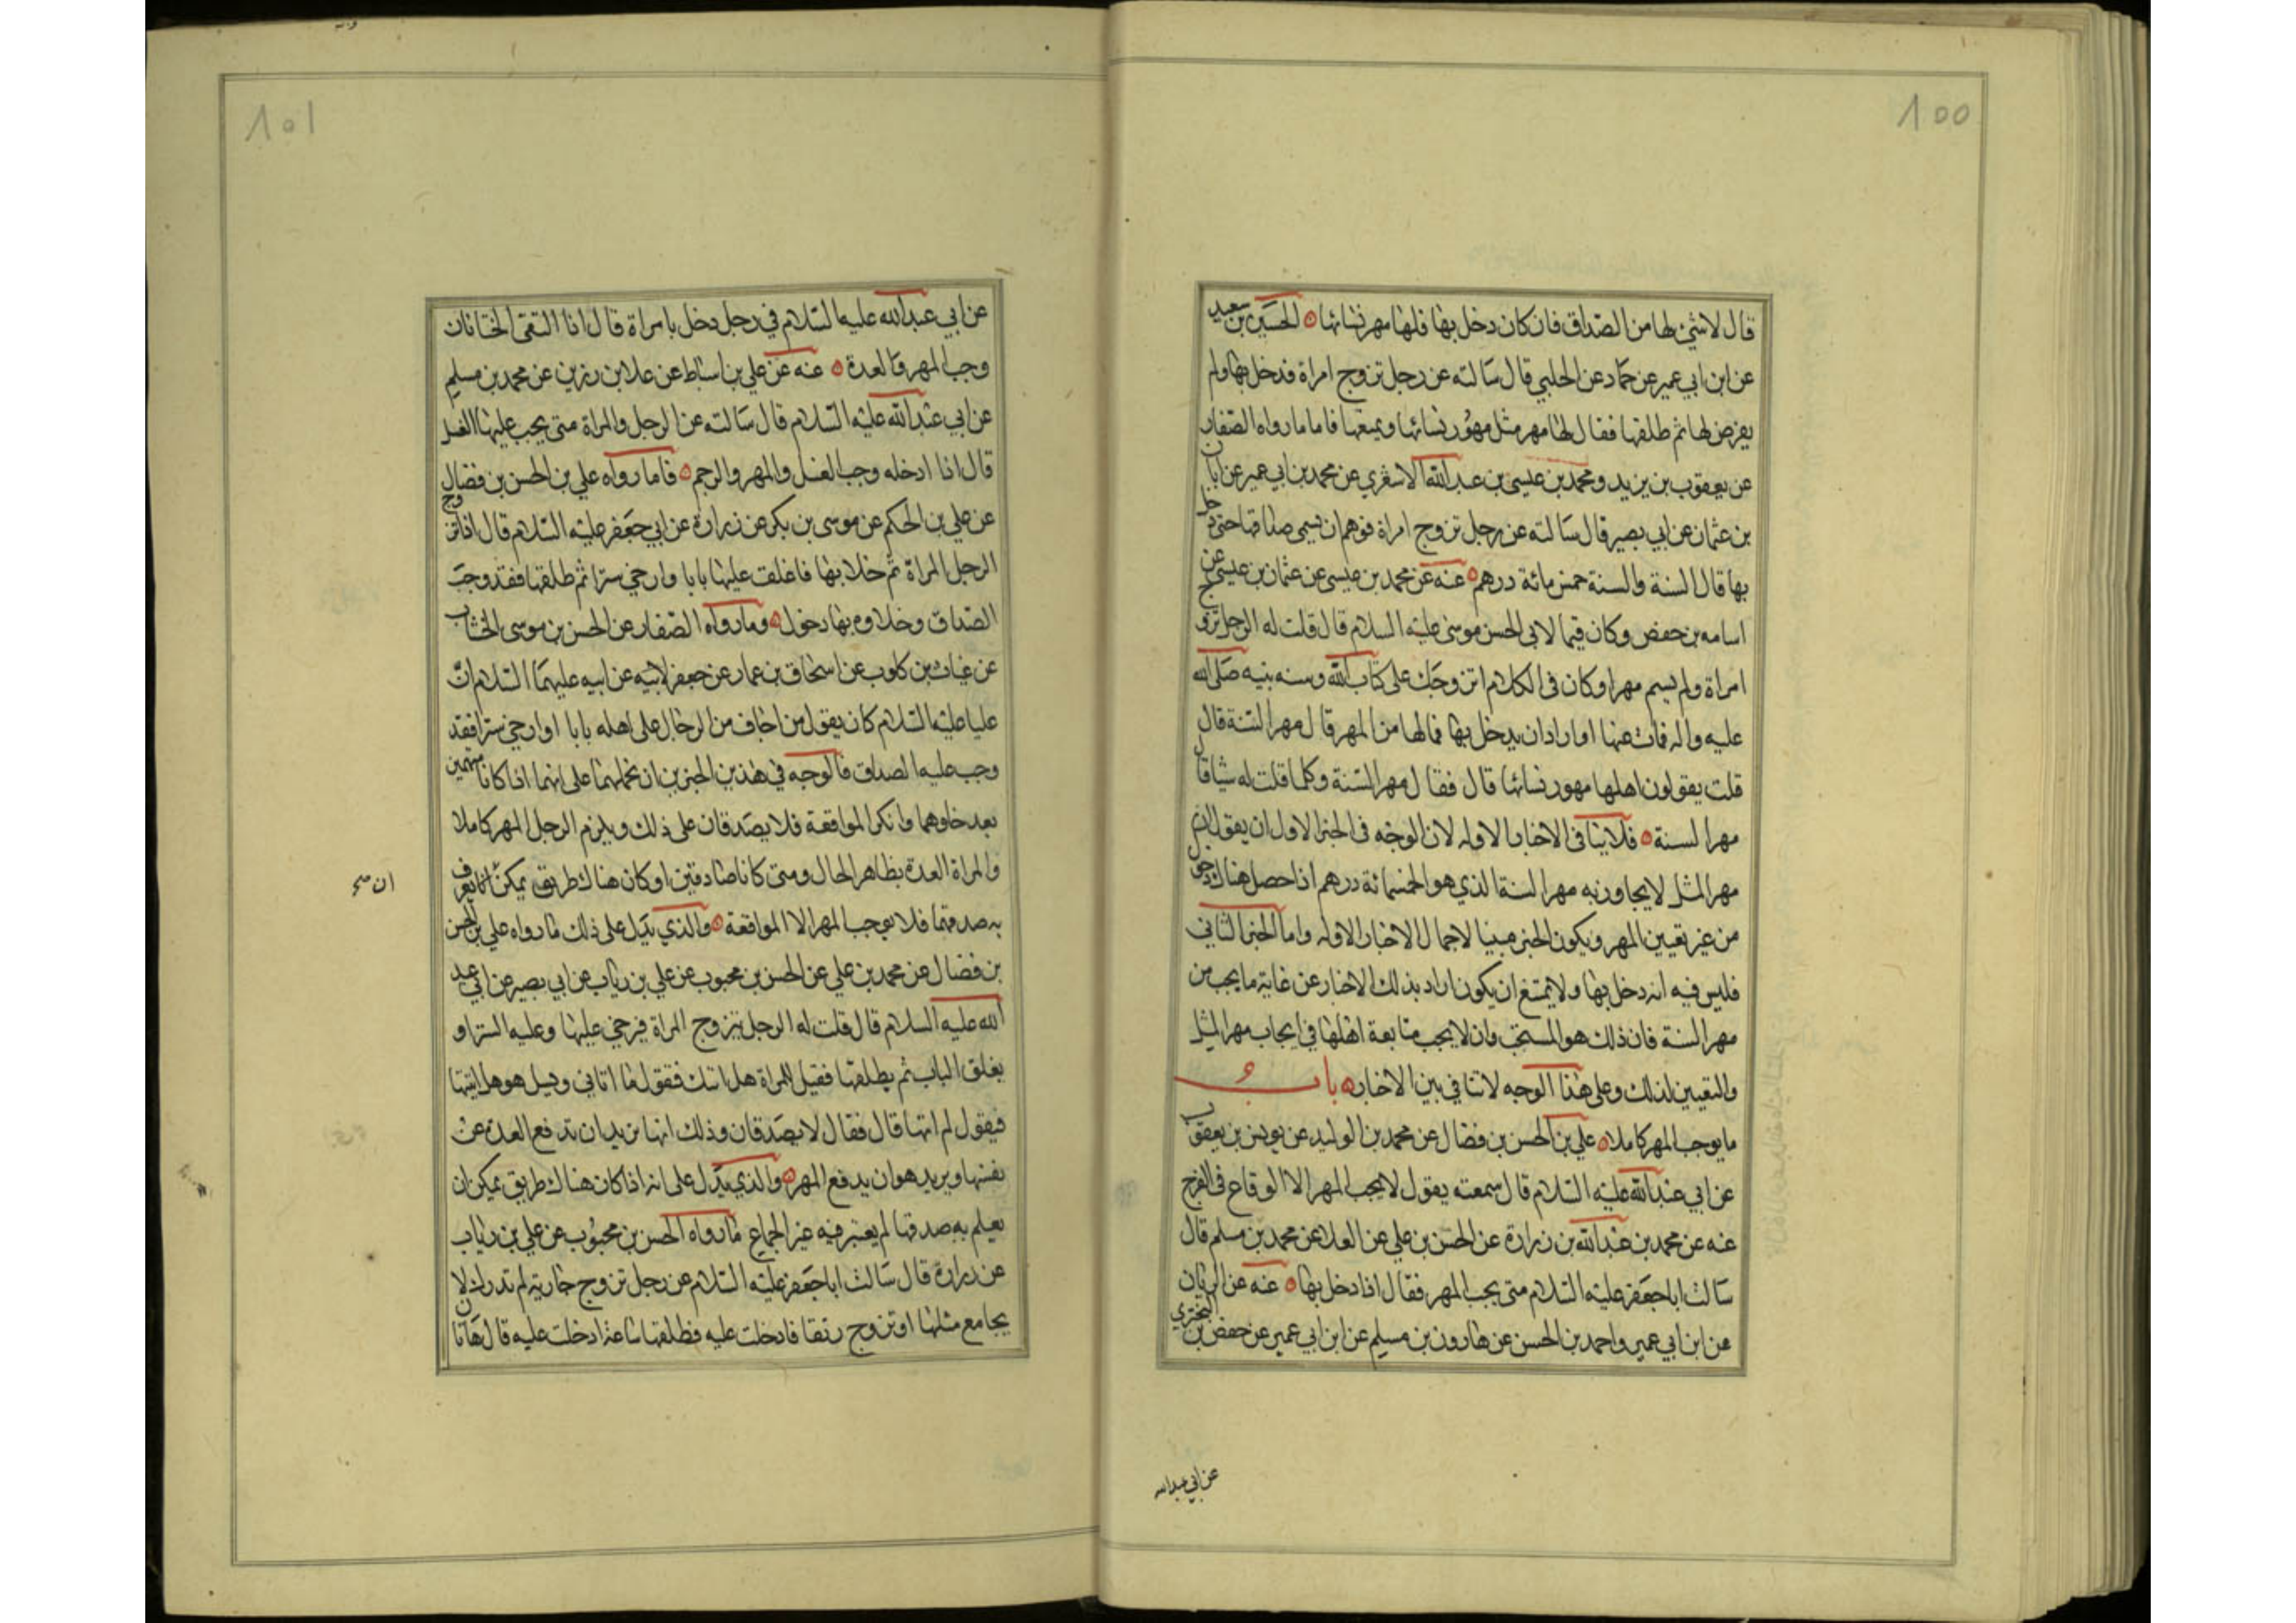 100
قال لا شيء لها من الصداق فان كان دخل بها فلها مهر نسائها الحسين بن سعيد
عن ابن ابي عمير عن حماد عن الحلبي قال سالته عن رجل تزوج امراة فدخل بها ولم
يفرض لها ثم طلقها فقال لها مهر مثل مهور نسائها ويمتعها فاما ما رواه الصفار
عن يعقوب بن يزيد ومحمد بن عيسى بن عبد الله الاشعري عن محمد بن ابي عمير عن ابان
بن عثمان عن ابي بصير قال سالته عن رجل تزوج امراة فوهم ان يسمى صداقها حتى دخل
بها قال السنة والسنة خمس مائة درهم عنه عن محمد بن عيسى عن عثمان بن عيسى عن
اسامه بن حفص وكان قيما لابي الحسن موسى عليه السلام قال قلت له الرجل تزوج
امراة ولم يسم مهرا وكان في الكلام اتزوجك على كتاب الله وسنه نبيه صلى الله
عليه واله فمات عنها او اراد ان يدخل بها فما لها من المهر قال مهر السنة قال
قلت يقولون اهلها مهور نسائها قال فقال مهر السنة وكلما قلت له شيا قال
مهر السنة فلا ينافي الاخبار الاوله لان الوجه في الخبر الاول ان يقول ان
مهر المثل لا يجاوز به مهر السنة الذي هو الخمسمائة درهم اذا حصل هناك دخول
من غير تعيين المهر ويكون الخبر مبينا لاجمال الاخبار الاوله واما الخبر الثاني
فليس فيه انه دخل بها ولا يمتنع ان يكون اراد بذلك الاخبار عن غاية ما يجب من
مهر السنة فان ذلك هو المستحب وان لا يجب متابعة اهلها في ايجاب مهر المثل
والتعيين لذلك وعلى هذا الوجه لا تنافي بين الاخبار باب
ما يوجب المهر كاملا علي بن الحسن بن فضال عن محمد بن الوليد عن يونس بن يعقوب
عن ابي عبد الله عليه السلام قال سمعته يقول لا يجب المهر الا الوقاع في الفرج
عنه عن محمد بن عبد الله بن زرارة عن الحسن بن علي عن العلا عن محمد بن مسلم قال
سالت ابا جعفر عليه السلام متى يجب المهر فقال اذا دخل بها عنه عن الريان
عن ابن ابي عمير واحمد بن الحسن عن هارون بن مسلم عن ابن ابي عمير عن حفص بن البختري
عن ابي عبد الله
101
عن ابي عبد الله عليه السلام في رجل دخل بامراة قال اذا التقى الختانان
وجب المهر والعدة عنه عن علي بن اسباط عن علا بن رزين عن محمد بن مسلم
عن ابي عبد الله عليه السلام قال سالته عن الرجل والمراة متى يجب عليهما الغسل
قال اذا ادخله وجب الغسل والمهر والرجم فاما رواه علي بن الحسن بن فضال
عن علي بن الحكم عن موسى بن بكر عن زرارة عن ابي جعفر عليه السلام قال اذا تزوج
الرجل المراة ثم خلا بها فاغلقت عليها بابا وارخى سترا ثم طلقها فقد وجب
الصداق وخلاوه بها دخول وما رواه الصفار عن الحسن بن موسى الخشاب
عن غياث بن كلوب عن اسحاق بن عمار عن جعفر لابيه عن ابيه عليهما السلام ان
عليا عليه السلام كان يقول من اجاف من الرجال على اهله بابا او ارخى سترا فقد
وجب عليه الصداق فالوجه في هذين الخبرين ان نحملهما على انهما اذا كانا متهمين
بعد خلوهما وانكرا المواقعة فلا يصدقان على ذلك ويلزم الرجل المهر كاملا
والمراة العدة بظاهر الحال ومتى كانا صادقين او كان هناك طريق يمكن ان يعرف
ان صح
به صدقهما فلا يوجب المهر الا المواقعة والذي يدل على ذلك ما رواه علي بن الحسن
بن فضال عن محمد بن علي عن الحسن بن محبوب عن علي بن رئاب عن ابي بصير عن ابي عبد
الله عليه السلام قال قلت له الرجل يتزوج المراة فيرخي عليها وعليه الستر او
يغلق الباب ثم يطلقها فقيل للمراة هل اتاك فتقول ما اتاني ويسل هو هل اتيتها
فيقول لم اتها قال فقال لا يصدقان وذلك انها تريد ان تدفع العدة عن
نفسها ويريد هو ان يدفع المهر والذي يدل على انه اذا كان هناك طريق يمكن ان
يعلم به صدقها لم يعتبر فيه غير الجماع ما رواه الحسن بن محبوب عن علي بن رئاب
عن زرارة قال سالت ابا جعفر عليه السلام عن رجل تزوج جارية لم تدرك لا
يجامع مثلها او تزوج رتقا فادخلت عليه فطلقها ساعة ادخلت عليه قال هاتان